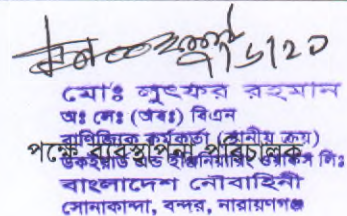 ৭/৬/২০
মোঃ লুৎফর রহমান
অঃ লেঃ (অবঃ) বিএন
বাণিজ্যিক কর্মকর্তা (স্থানীয় ক্রয়)
পক্ষে ব্যবস্থাপনা পরিচালক
ডকইয়ার্ড এন্ড ইঞ্জিনিয়ারিং ওয়ার্কস লিঃ
বাংলাদেশ নৌবাহিনী
সোনাকান্দা, বন্দর, নারায়ণগঞ্জ